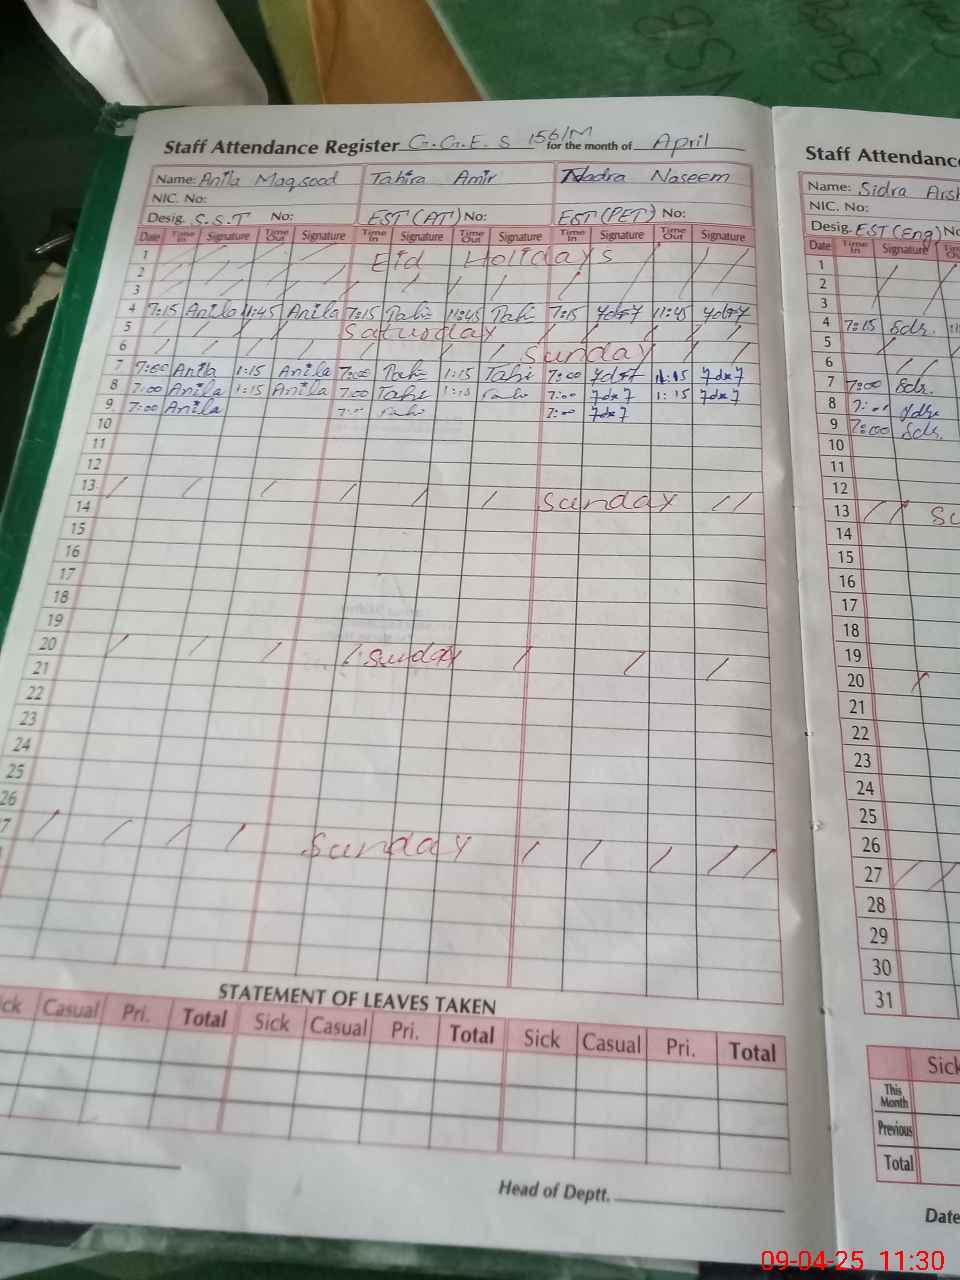 Staff Attendance Register G.G.E.S 156/M for the month of April
Name: Anila Maqsood Tahira Amir Nadra Naseem
NIC. No:
Desig. S.S.T No: EST (AT) No: EST (PET) No:
Date Time In Signature Time Out Signature Time In Signature Time Out Signature Time In Signature Time Out Signature
1 Eid Holidays
2
3
4 7:15 Anila 11:45 Anila 7:15 11:45 7:15 11:45
5 Saturday
6 Sunday
7 7:00 Anila 1:15 Anila 7:00 1:15 Tahi 7:00
8 7:00 Anila 1:15 Anila 7:00 Tahi 1:15 7:00 1:15
9 7:00 Anila 7:00 7:00
10
11
12
13 Sunday
14
15
16
17
18
19
20 Sunday
21
22
23
24
25
26
7 Sunday
STATEMENT OF LEAVES TAKEN
ick Casual Pri. Total Sick Casual Pri. Total Sick Casual Pri. Total
Head of Deptt.
Staff Attendance
Name: Sidra Arsh
NIC. No:
Desig. EST (Eng) No
Date Time In Signature
1
2
3
4 7:15 Sdr.
5
6
7 7:00 Sdr.
8
9 7:00 Sdr.
10
11
12
13 Su
14
15
16
17
18
19
20
21
22
23
24
25
26
27
28
29
30
31
Sick
This Month
Previous
Total
Date
09-04-25 11:30